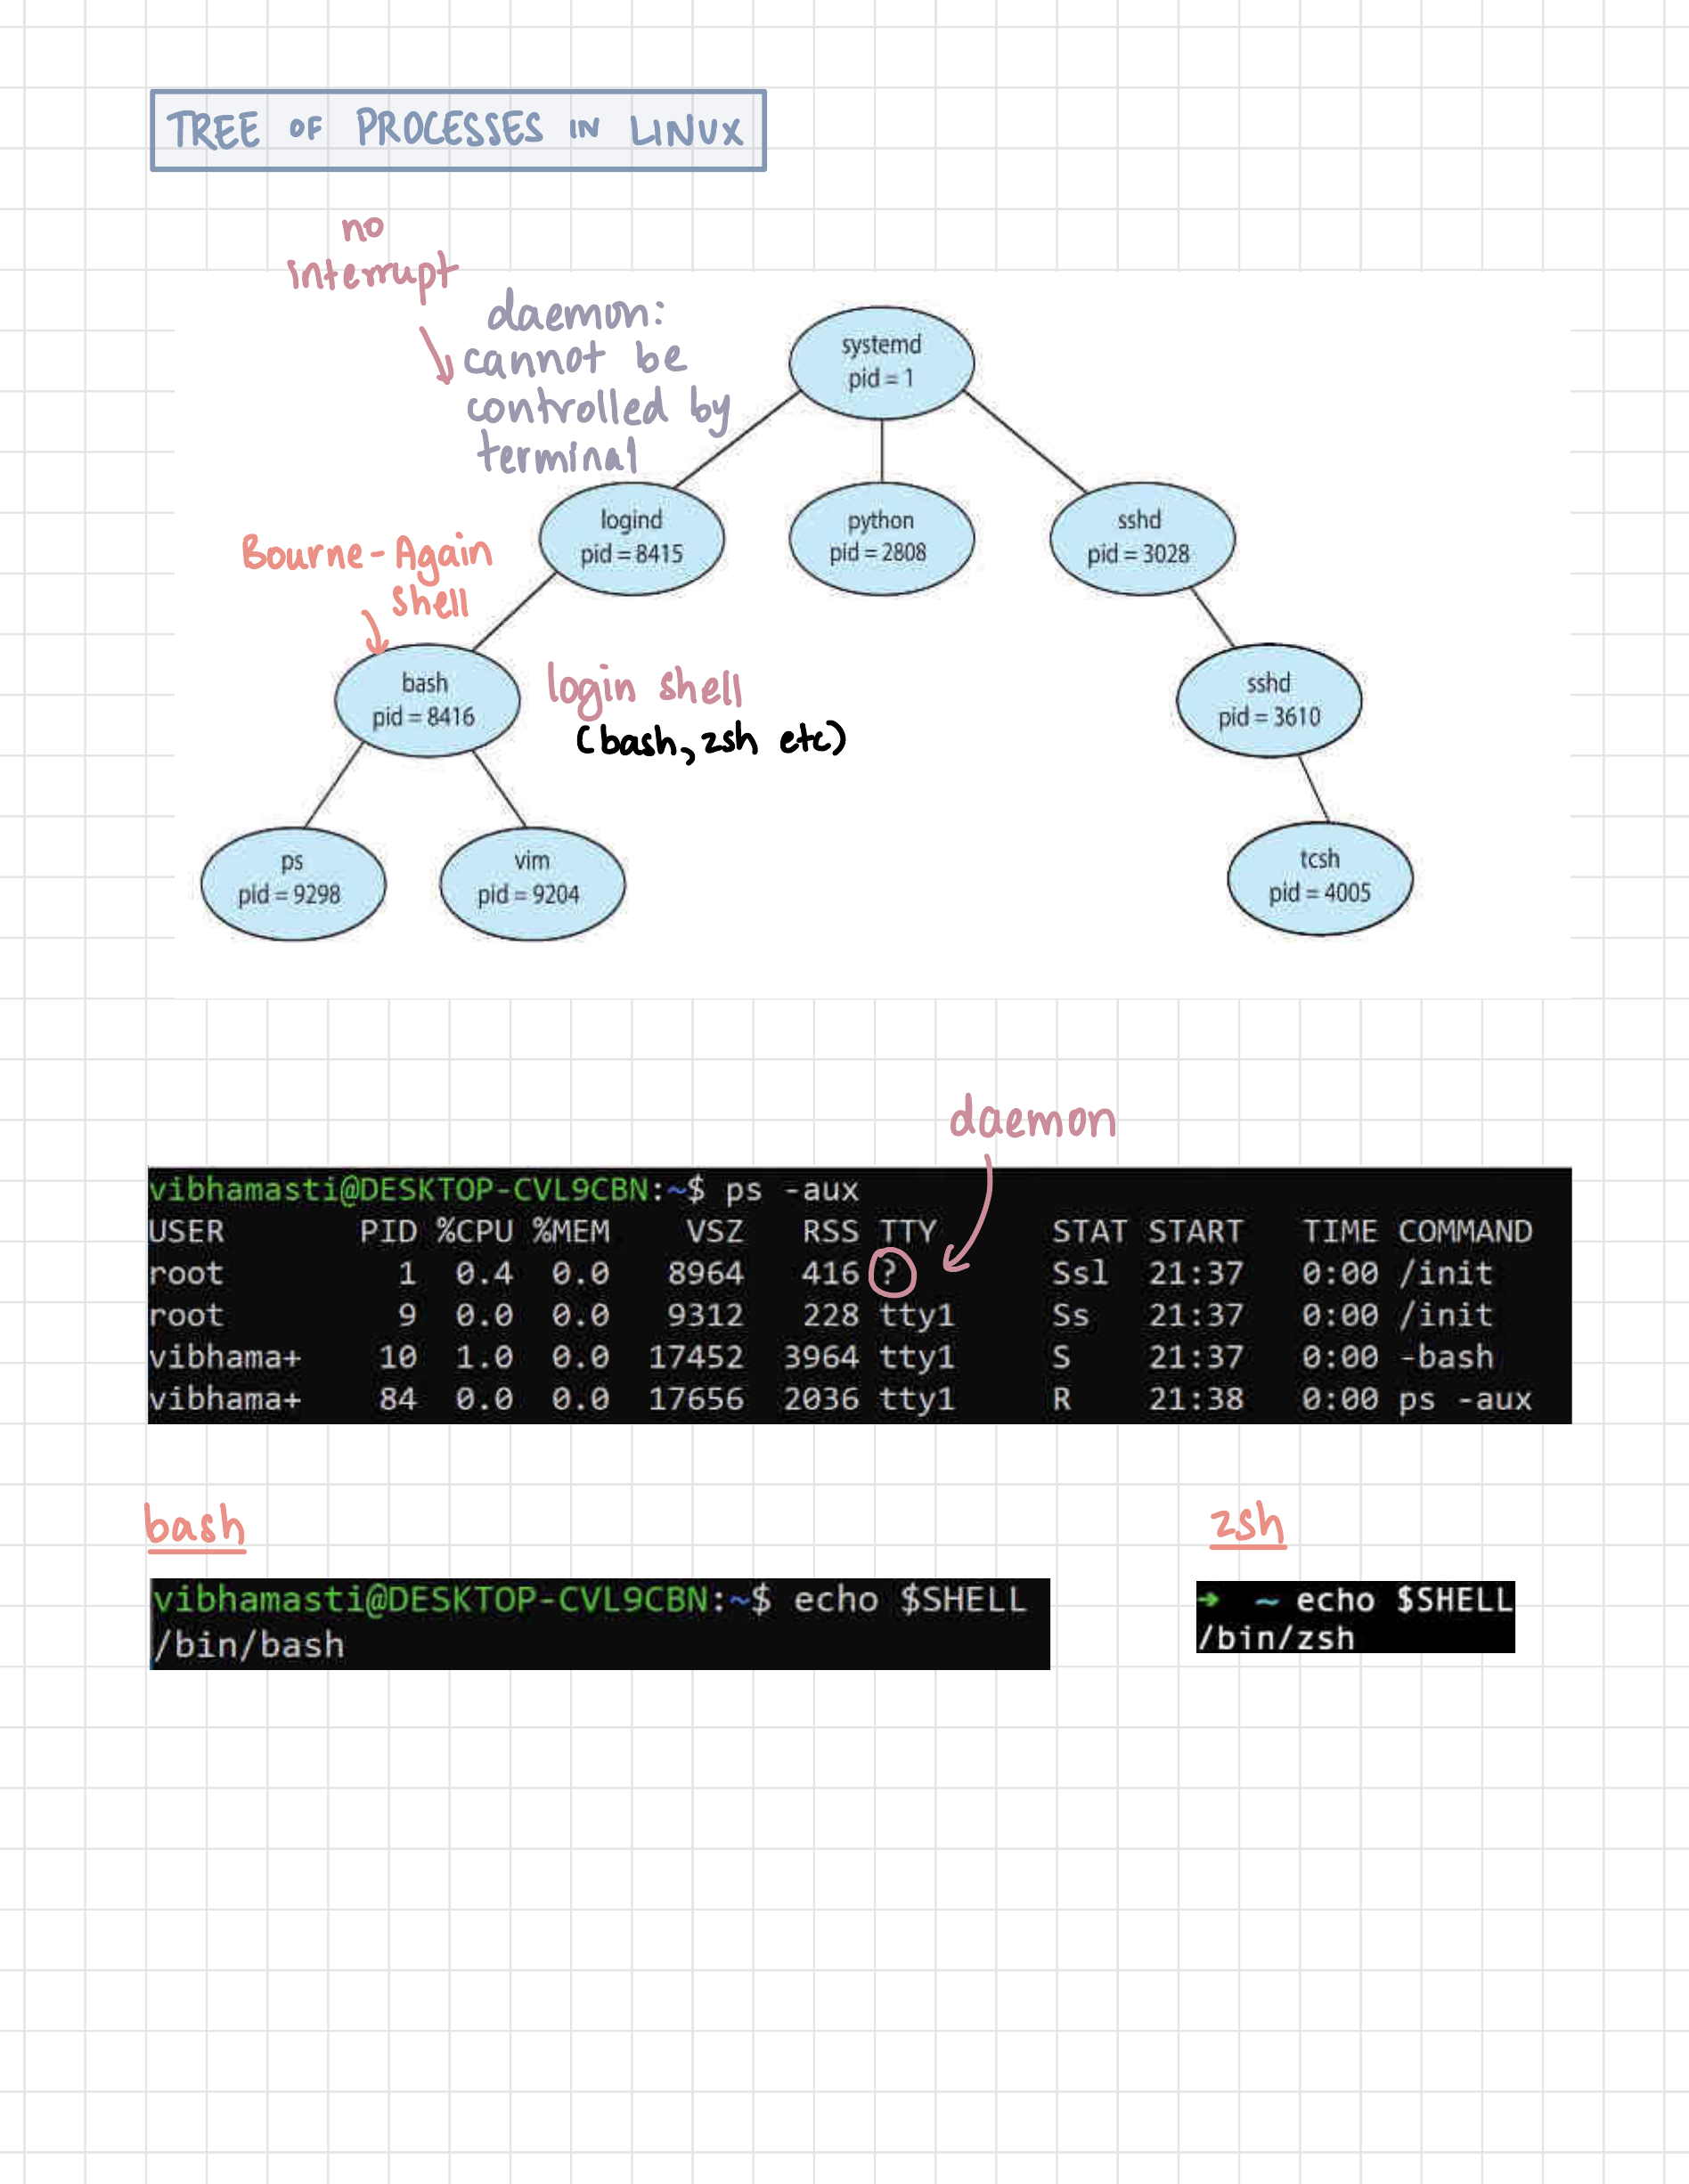 TREE OF PROCESSES IN LINUX
no
interrupt
daemon:
cannot be
controlled by
terminal
systemd
pid = 1
logind
pid = 8415
python
pid = 2808
sshd
pid = 3028
Bourne-Again
shell
bash
pid = 8416
login shell
(bash, zsh etc)
sshd
pid = 3610
ps
pid = 9298
vim
pid = 9204
tcsh
pid = 4005
daemon
vibhamasti@DESKTOP-CVL9CBN:~$ ps -aux
USER PID %CPU %MEM VSZ RSS TTY STAT START TIME COMMAND
root 1 0.4 0.0 8964 416 ? Ssl 21:37 0:00 /init
root 9 0.0 0.0 9312 228 tty1 Ss 21:37 0:00 /init
vibhama+ 10 1.0 0.0 17452 3964 tty1 S 21:37 0:00 -bash
vibhama+ 84 0.0 0.0 17656 2036 tty1 R 21:38 0:00 ps -aux
bash
vibhamasti@DESKTOP-CVL9CBN:~$ echo $SHELL
/bin/bash
zsh
➜ ~ echo $SHELL
/bin/zsh